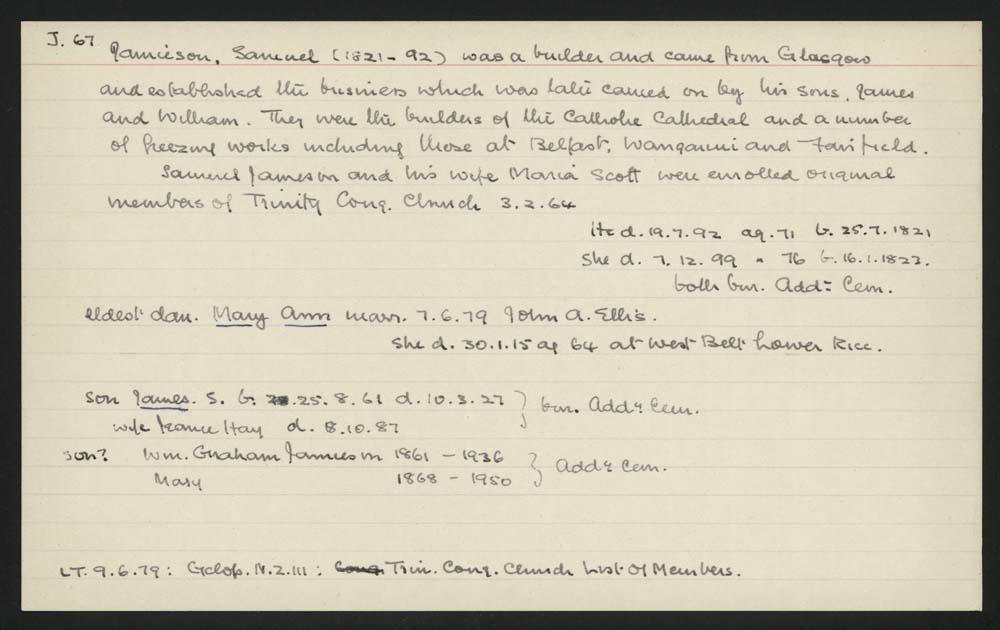 J. 67
Jamieson, Samuel (1821-92) was a builder and came from Glasgow
and established the business which was later carried on by his sons, James
and William. They were the builders of the Catholic Cathedral and a number
of freezing works including those at Belfast, Wanganui and Fairfield.
Samuel Jameson and his wife Maria Scott were enrolled original
members of Trinity Cong. Church 3.2.64
He d. 19.7.92 ag. 71 b. 25.7.1821
She d. 7.12.99 " 76 b. 16.1.1823.
both bur. Add: Cem.
eldest dau. Mary Ann marr. 7.6.79 John A. Ellis.
She d. 30.1.15 ag 64 at West Belt Lower Ricc.
son James. S. b. 25.8.61 d. 10.3.27 } bur. Add: Cem.
wife Jeanie Hay d. 8.10.87
son? Wm. Graham Jamieson 1861 - 1936 } Add: Cem.
Mary 1868 - 1950
LT. 9.6.79: Cyclop. N.Z. III: Cong. Trin. Cong. Church List of Members.